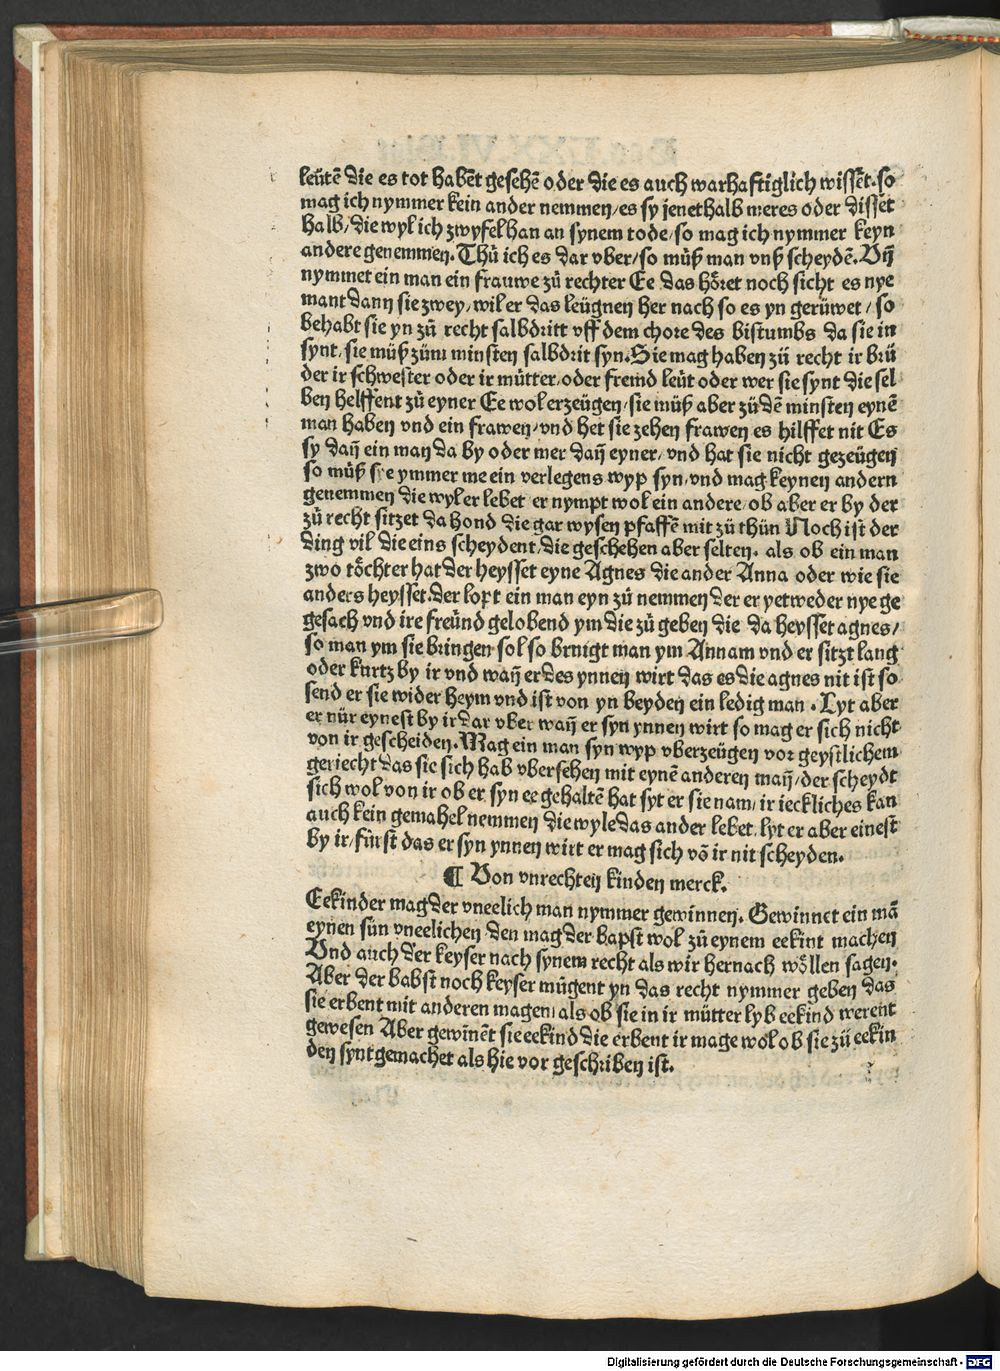 leütē die es tot habēt gesehē oder die es auch warhafftiglich wissēt. so
mag ich nymmer kein ander nemmen/ es sy jenethalb meres oder dissēt
halb/ die wyl ich zwyfel han an synem tode/ so mag ich nymmer keyn
andere genemmen. Thů ich es dar vber/ so můß man vnß scheydē. Vn̄
nymmet ein man ein frauwe zů rechter Ee das höret noch sicht es nye
mant dann sie zwey/ wil er das leügnen her nach so es yn gerüwet/ so
behabt sie yn zů recht salbdritt vff dem chore des bistumbs da sie in
synt/ sie můß zům minsten salbdrit syn. Sie mag haben zů recht ir brů
der ir schwester oder ir můtter/ oder fremd leüt oder wer sie synt die sel
ben helffent zů eyner Ee wol erzeügen/ sie můß aber zů dē minsten eynē
man haben vnd ein frawen/ vnd het sie zehen frawen es hilffet nit Es
sy dan̄ ein man da by oder mer dan̄ eyner/ vnd hat sie nicht gezeügen
so můß sie ymmer me ein verlegens wyp syn/ vnd mag keynen andern
genemmen die wyl er lebet er nympt wol ein andere/ ob aber er by der
zů recht sitzet da hond die gar wysen pfaffē mit zů thůn Noch ist der
ding vil die eins scheydent/ die geschehen aber selten. als ob ein man
zwo töchter hat der heysset eyne Agnes die ander Anna oder wie sie
anders heysset. der lopt ein man eyn zů nemmen der er yetweder nye ge
gesach vnd ire freünd gelobend ym die zů geben die da heysset agnes/
so man ym sie bringen sol so brnigt man ym Annam vnd er sitzt lang
oder kurtz by ir vnd wan̄ er des ynnen wirt das es die agnes nit ist so
send er sie wider heym vnd ist von yn beyden ein ledig man. Lyt aber
er nůr eynest by ir dar vber wan̄ er syn ynnen wirt so mag er sich nicht
von ir gescheiden. Mag ein man syn wyp vberzeügen vor geystlichem
geriecht das sie sich hab vbersehen mit eynē anderen man̄/ der scheydt
sich wol von ir ob er syn ee gehaltē hat syt er sie nam/ ir ieckliches kan
auch kein gemahel nemmen die wyle das ander lebet/ lyt er aber einest
by ir/ fürst das er syn ynnen wirt er mag sich vō ir nit scheyden.
¶ Von vnrechten kinden merck.
Eekinder mag der vneelich man nymmer gewinnen. Gewinnet ein mā
eynen sůn vneelichen den mag der bapst wol zů eynem eekint machen
Vnd auch der keyser nach synem recht als wir hernach wöllen sagen.
Aber der babst noch keyser mügent yn das recht nymmer geben das
sie erbent mit anderen magen/ als ob sie in ir můtter lyb eekind werent
gewesen Aber gewīnēt sie eekind die erbent ir mage wol ob sie zů eekin
den synt gemachet als hie vor geschriben ist.
Digitalisierung gefördert durch die Deutsche Forschungsgemeinschaft - DFG